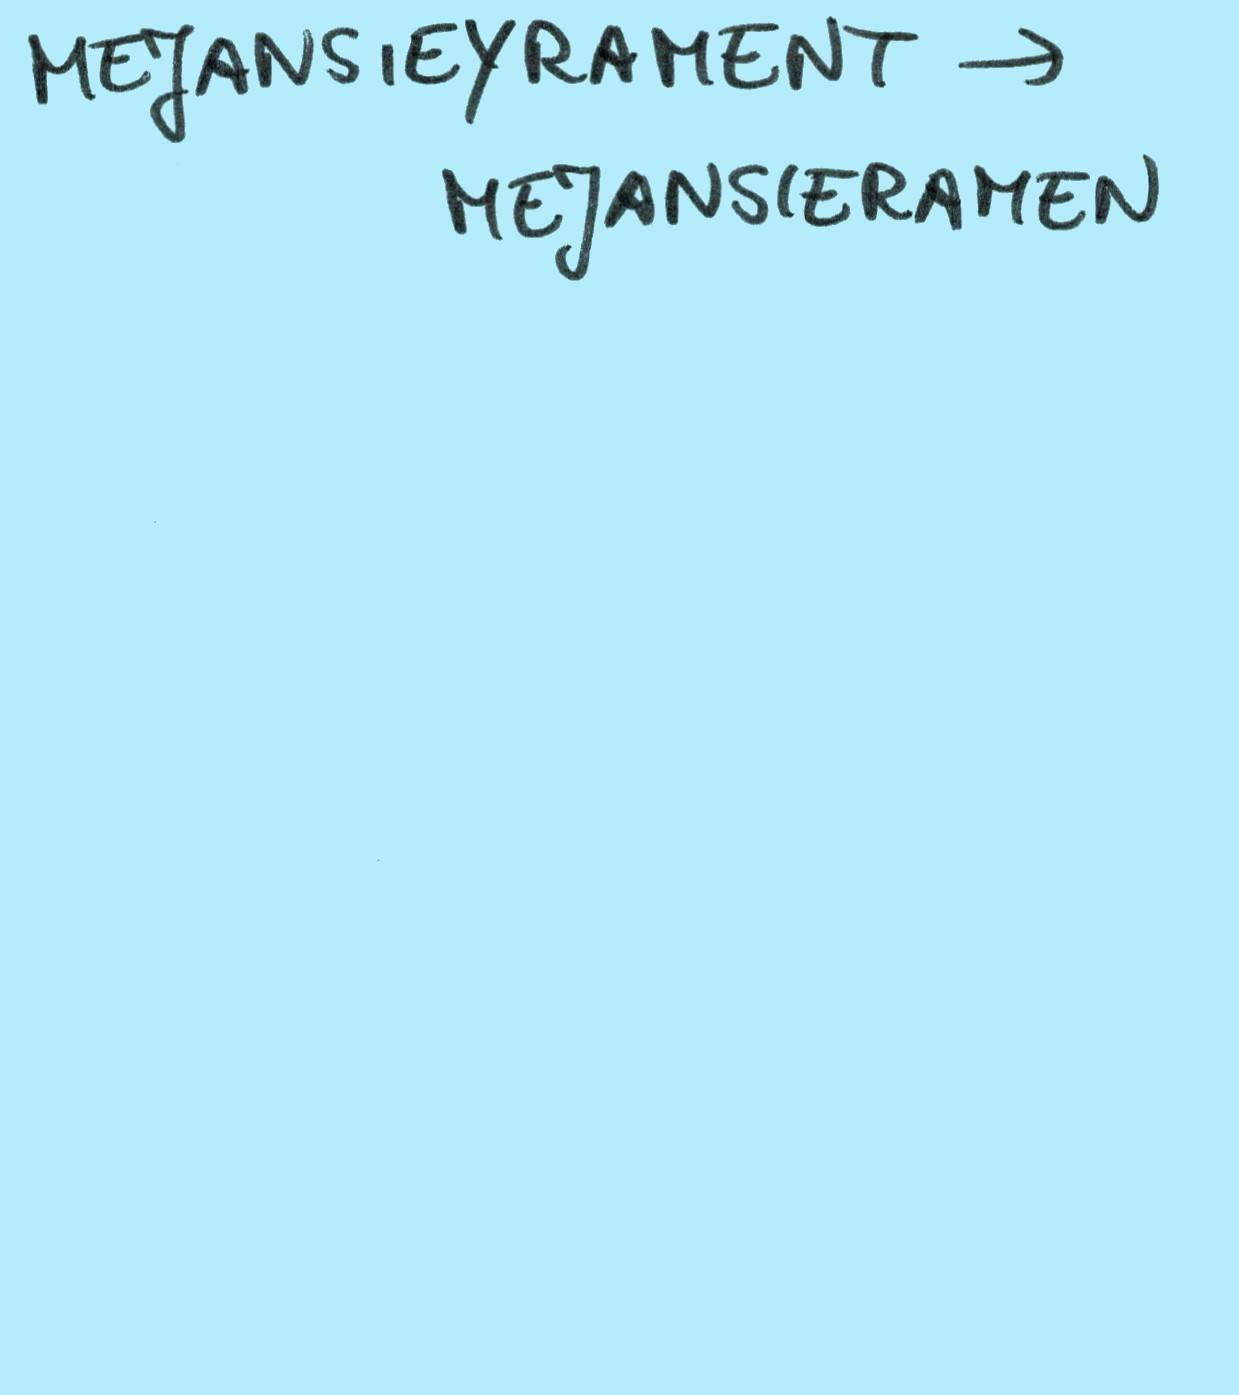 MEJANSIEYRAMENT →
MEJANSIERAMEN